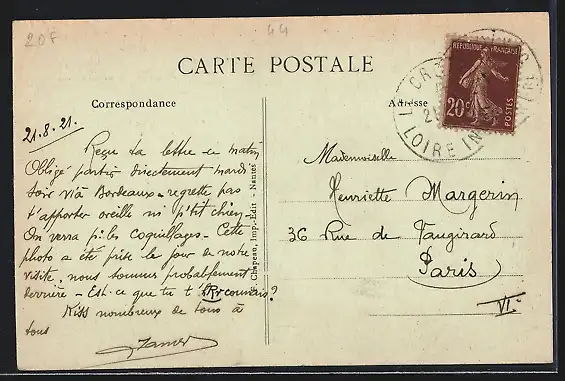 20F
44
CARTE POSTALE
Correspondance
Adresse
RÉPUBLIQUE FRANÇAISE
20c
POSTES
LOIRE IN
21.8.21.
Reçu ta lettre ce matin
Obligé partir directement mardi
soir via Bordeaux - regrette pas
t'apporter oreille ni p'tit chien.
On verra p. les coquillages - Cette
photo a été prise le jour de notre
visite, nous sommes probablement
derrière - Est-ce que tu t'y Rrconnais?
Kiss nombreux de tous à
tous
Chapeau, Imp.-Edit - Nantes
Mademoiselle
Henriette Margerin
36 Rue de Vaugirard
Paris
VIe